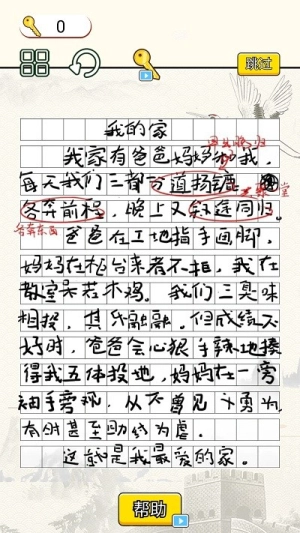 0
跳过
我的家
我家有爸爸妈妈和我,
每天我们三都分道扬镳
各奔前程,晚上又殊途同归。
各奔东西
爸爸在工地指手画脚,
妈妈在柜台来者不拒,我在
教室呆若木鸡。我们三臭味
相投,其乐融融。但成绩不
好时,爸爸会心狠手辣地揍
得我五体投地,妈妈在一旁
袖手旁观,从不见义勇为,
有时甚至助纣为虐。
这就是我最爱的家。
帮助